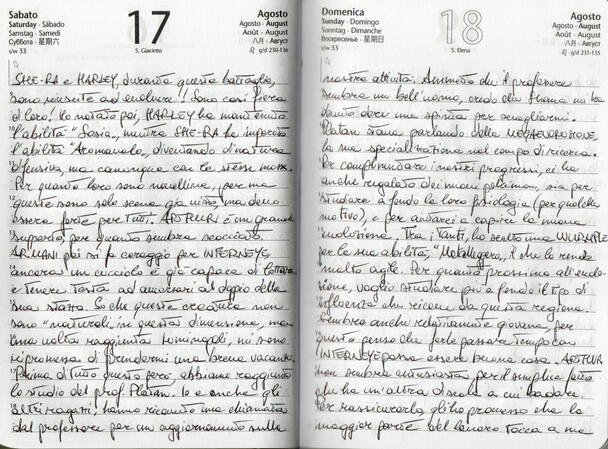 Sabato
Saturday · Sábado
Samstag · Samedi
Суббота · 星期六
s/w 33
17
S. Giacinto
Agosto
Agosto · August
Août · August
八月 · Август
g/d 230-136
SHE-RA e HARLEY, durante questa battaglia,
sono riuscite ad evolvere! Sono così fiera
di loro! Ho notato poi, HARLEY ha mantenuto
l'abilità "Sosia", mentre SHE-RA ha imparato
l'abilità "Aromavelo", diventando di natura
difensiva, ma comunque con le stesse mosse.
Per quanto loro sono novelline, per me
queste sono solo scene già viste, ma devo
essere forte per tutti. ARTHUR è un grande
supporto, per quanto sembra scocciato.
ARMANI poi mi fa coraggio per INTERNEYE
ancora un cucciolo e già capace di lottare
e tenere testa ad avversari al doppio della
sua stazza. So che queste creature non
sono "naturali" in questa dimensione, ma
una volta raggiunta Luminopoli, mi sono
ripromessa di prendermi una breve vacanza.
Prima di tutto questo però, abbiamo raggiunto
lo studio del prof. Platan. Io e anche gli
altri ragazzi, hanno ricevuto una chiamata
dal professore per un aggiornamento sulla
Domenica
Sunday · Domingo
Sonntag · Dimanche
Воскресенье · 星期日
s/w 33
18
S. Elena
Agosto
Agosto · August
Août · August
八月 · Август
g/d 231-135
nostra attività. Ammetto che il professore
sembra un bell'uomo, credo che mi ha
dato dove una spinta per
Platan stava parlando della MEGAEVOLUZIONE,
la sua specializzazione nel campo di ricerca.
Per complimentare i nostri progressi, ci ha
anche regalato dei nuovi pokémon, sia per
studiare a fondo la loro fisiologia (per qualche
motivo), e per aiutarci a capire la nuova
evoluzione. Tra i tanti, ho scelto una WURMPLE
per la sua abilità, "Metalleggero", il che lo rende
molto agile. Per quanto prossimo all'evolu-
zione, voglio studiare più a fondo il tipo di
influenza che riceve da questa regione.
Sembra anche relativamente giovane, per
questo penso che forse passare tempo con
INTERNEYE possa essere buona cosa. ARTHUR
non sembra entusiasta, per il semplice fatto
che ha un'altra discola a cui badare.
Per rassicurarlo gli ho promesso che la
maggior parte del lavoro tocca a me